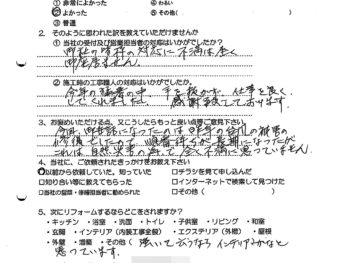 ①非常によかった　④わるい
②よかった　⑤その他(　　　)
③普通
2. そのように思われた訳を教えていただけますか
①当社の受付及び営業担当者の対応はいかがでしたか?
御社の皆様の対応に不満は全く
御座居ません。
②施工時の工事職人の対応はいかがでしたか。
今年の猛暑の中、手を抜かず、仕事を良く
してくれました。感謝致しております。
3. お勧めいただける点、又こうしたらもっと良い点等ご意見下さい。
今回、御世話になったのは昨年の台風の被害の
修復でしたので、順番待ちが長期になったが
これは自然災害の為で、全く不満に思っていません
4. 当社に、ご依頼されたきっかけをお教え下さい
○以前から依頼していた。知っていた　□チラシを見て申し込んだ
□知り合い等に教えてもらった　□インターネットで検索して見つけた
□当社の協業・修理担当者に勧められた　□その他(　　　)
5. 次にリフォームするならどこをされますか?
・キッチン　・浴室　・洗面　・トイレ　・子供室　・リビング　・和室
・玄関　・インテリア(内装工事全般)　・エクステリア(外構)　・屋根
・外壁　・増築　・その他(強いて言うなら インテリアかなと
思っています。